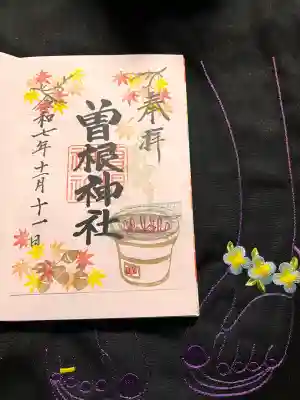 奉拝
曽根神社
令和七年十一月十一日